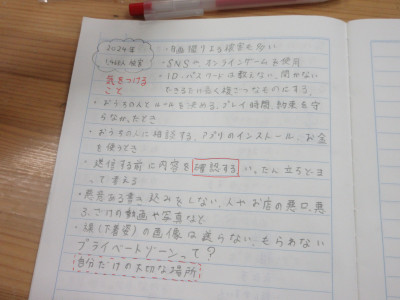 2024年
・自画撮りよる被害も多い
・SNSや オンラインゲームを使用
気をつける
こと
・ID・パスワードは教えない、聞かない
できるだけ長く複ざつなものにする。
・おうちの人とルールを決める。プレイ時間、約束を守
らなかったとき
・おうちの人に相談する。アプリのインストール、お金
を使うとき
・送信する前に内容を確認する い。たん立ちどまる
って考える
・悪意ある書き込みをしない。人やお店の悪口、悪
ふざけの動画や写真など
・裸(下着姿)の画像は送らない、もらわない
プライベートゾーンって?
自分だけの大切な場所